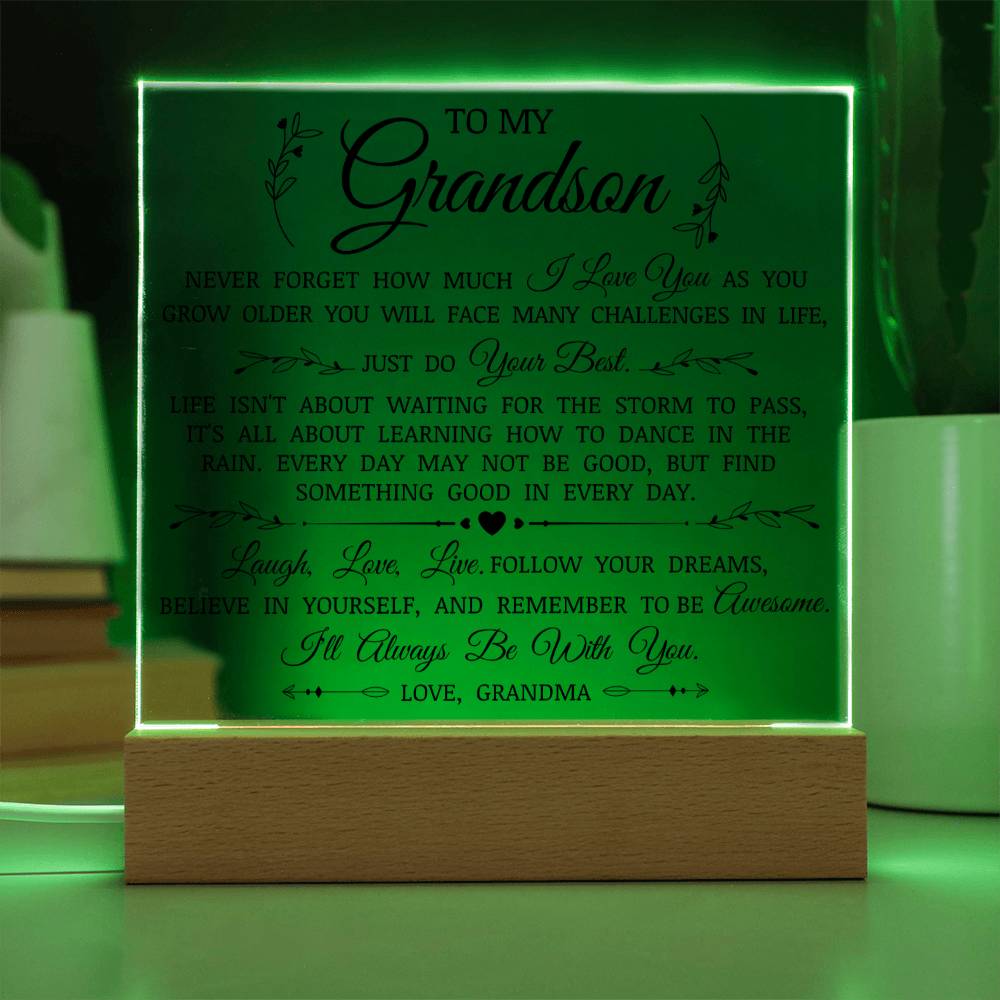 TO MY
Grandson
NEVER FORGET HOW MUCH I Love You AS YOU
GROW OLDER YOU WILL FACE MANY CHALLENGES IN LIFE,
JUST DO Your Best.
LIFE ISN'T ABOUT WAITING FOR THE STORM TO PASS,
IT'S ALL ABOUT LEARNING HOW TO DANCE IN THE
RAIN. EVERY DAY MAY NOT BE GOOD, BUT FIND
SOMETHING GOOD IN EVERY DAY.
Laugh, Love, Live. FOLLOW YOUR DREAMS,
BELIEVE IN YOURSELF, AND REMEMBER TO BE Awesome.
I'll Always Be With You.
LOVE, GRANDMA